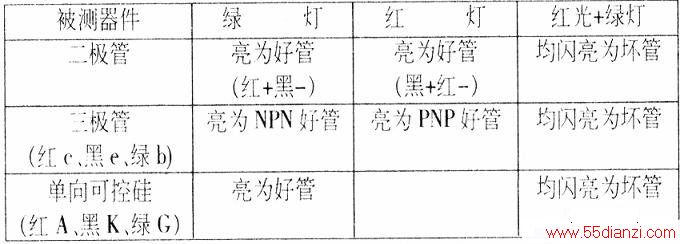 被测器件 绿 灯 红 灯 红光+绿灯
二极管 亮为好管 亮为好管 均闪亮为坏管
(红+黑-) (黑+红-)
三极管 亮为NPN好管 亮为PNP好管 均闪亮为坏管
(红c、黑e、绿b)
单向可控硅 亮为好管 均闪亮为坏管
(红A、黑K、绿G)
www.55dianzi.com